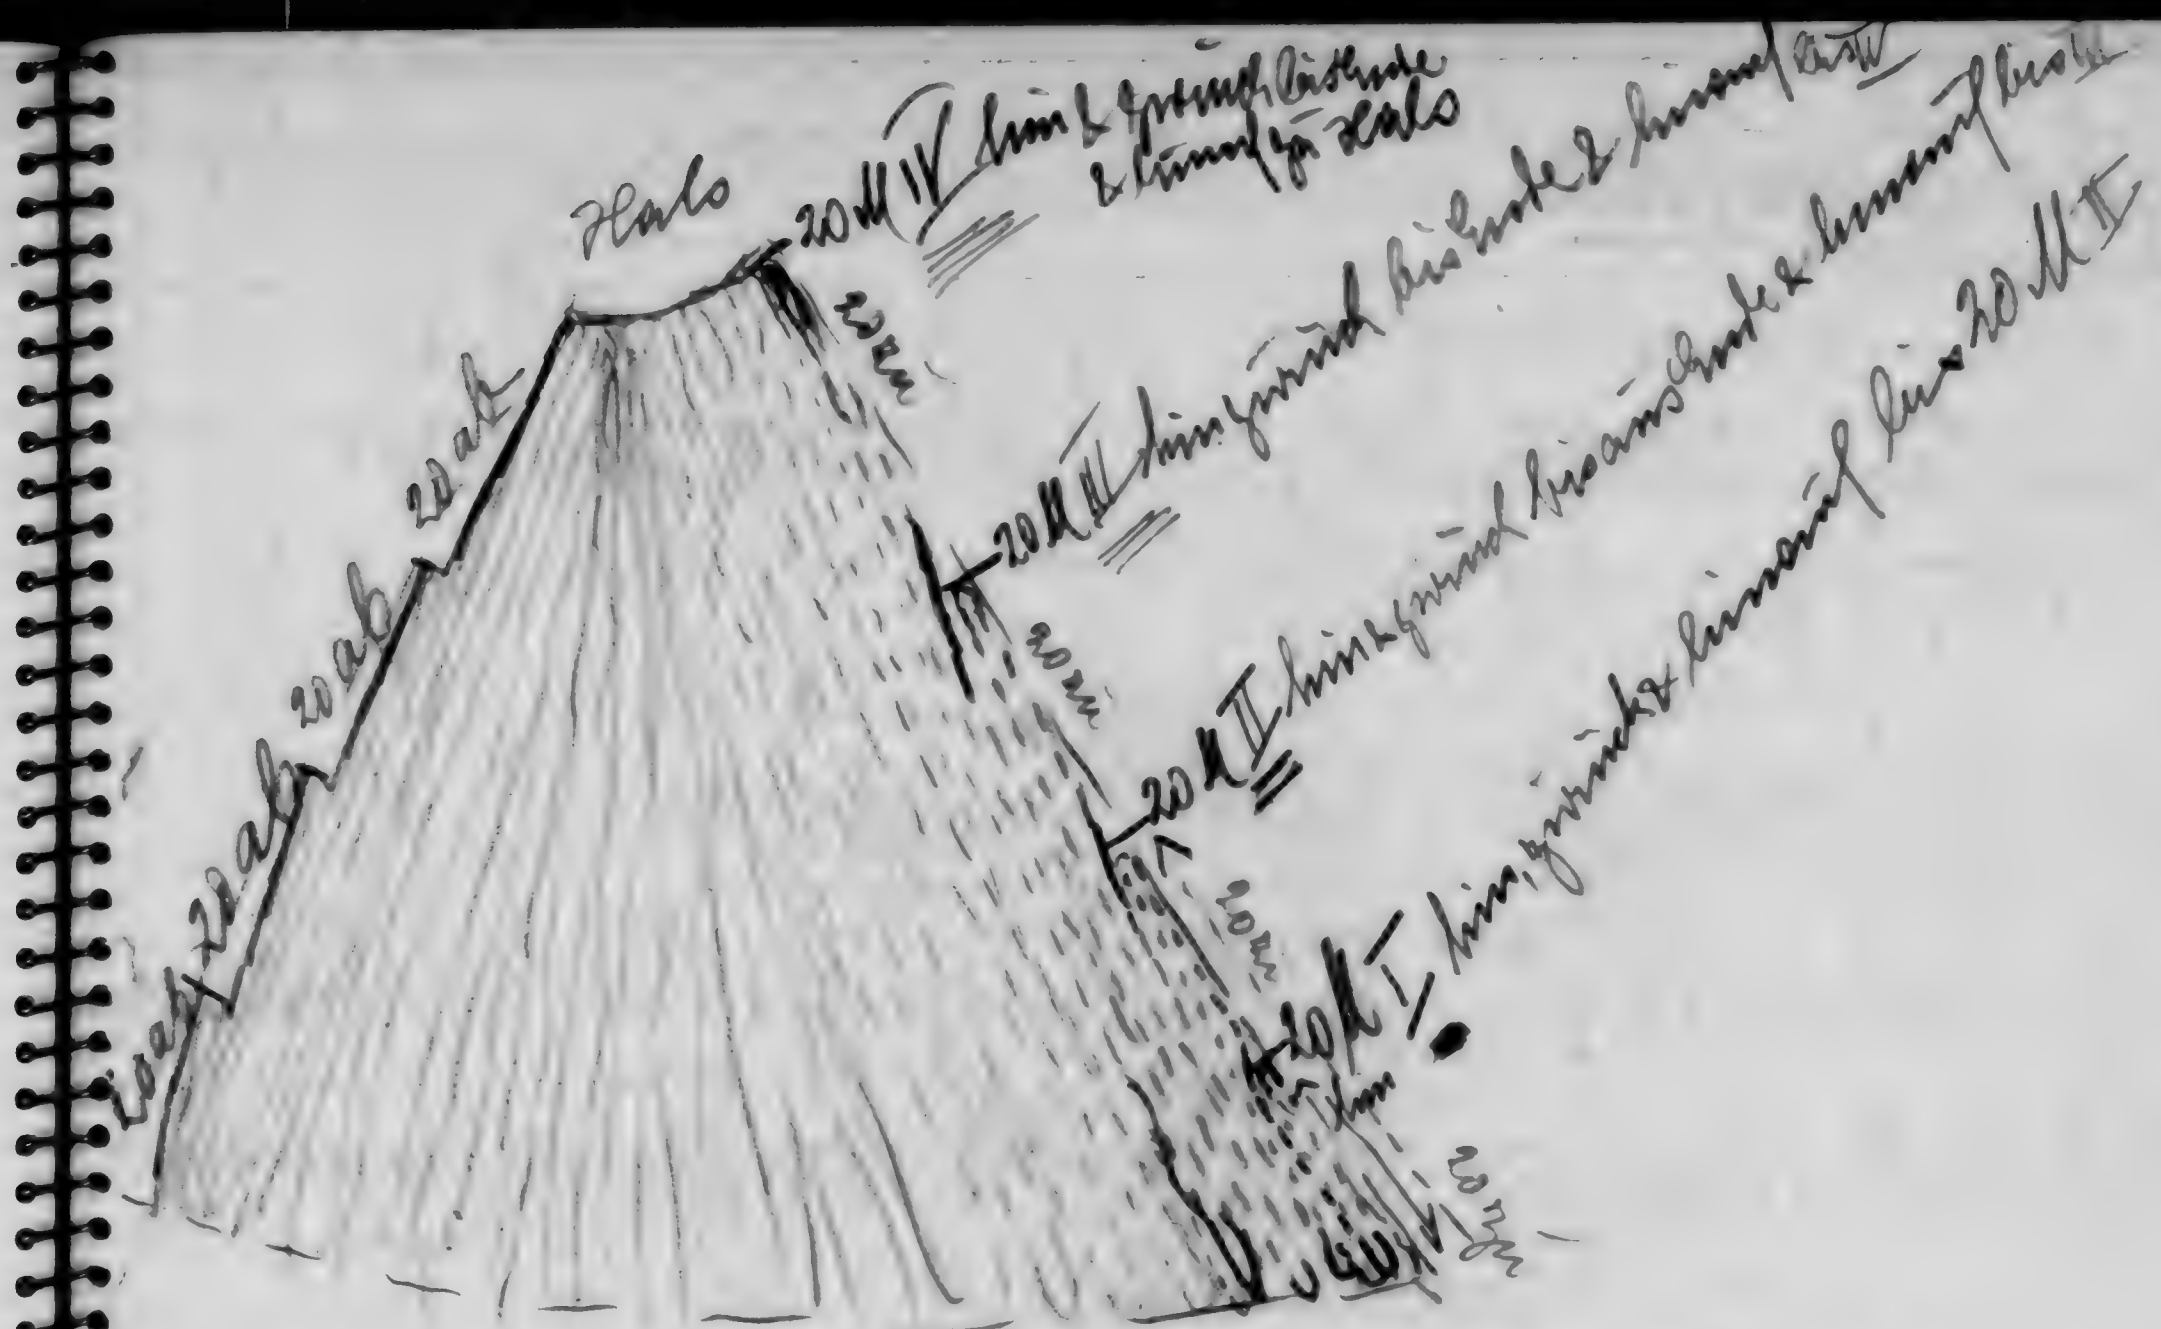 Hals
20 M IV hin & zurück bis Ende
& hinauf zu Hals
20 M III hin zurück bis Ende & hinauf bis IV
20 M II hin & zurück bis ans Ende & hinauf bis III
20 M I hin, zurück & hinauf bis 20 M II
20 ab
20 ab
20 ab
20 ab
20 zu
20 zu
20 zu
20 zu